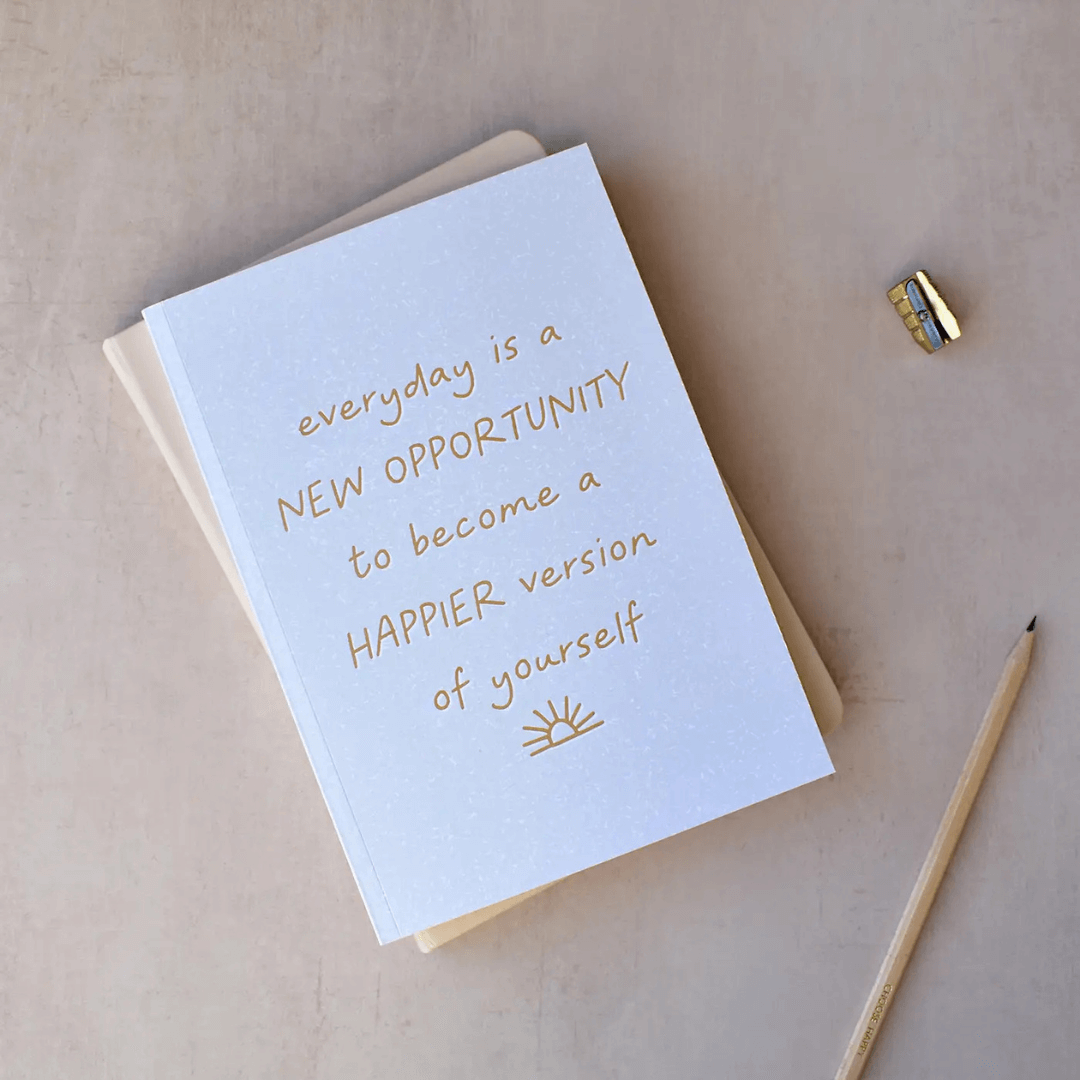 everyday is a
NEW OPPORTUNITY
to become a
HAPPIER version
of yourself
CHOOSE HAPPY